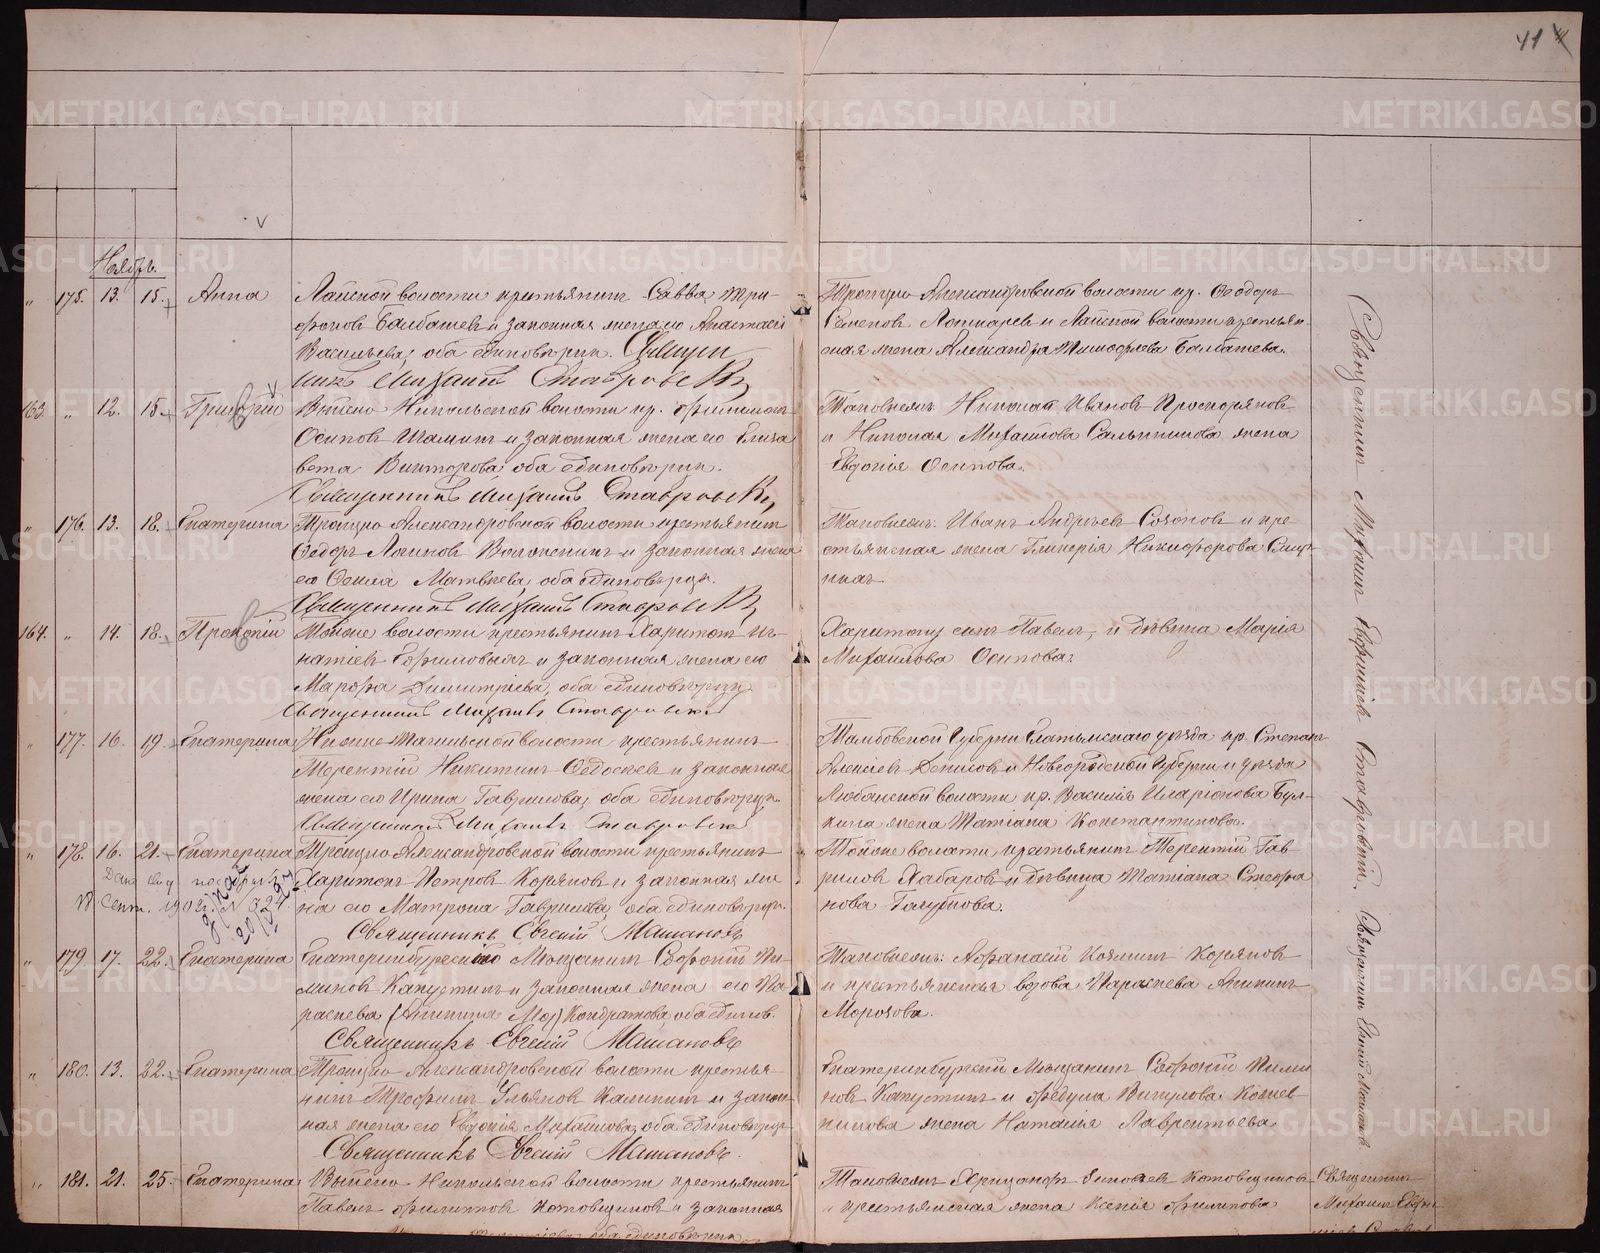 41
METRIKI.GASO-URAL.RU
Ноябрь.
" 175. 13. 15. Анна
Лайской волости крестьянинъ Савва Три-
фоновъ Балбашевъ и законная жена его Анастасія
Васильева, оба единоверцы. Священ
никъ Михаилъ Ставровскій
Троицко Александровской волости кр. Ѳеодоръ
Семеновъ и Лайской волости крестьян-
ская жена Александра Тимофеева Балбашева.
163 " 12. 15. Григорій
Выйско Никольской волости кр. Филимонъ
Осиповъ Шаминъ и законная жена его Елиза
вета Викторова, оба единоверцы.
Священникъ Михаилъ Ставровскій
Таковыежъ: Николай Ивановъ
и Николая Михайлова жена
Евдокія Осипова.
" 176. 13. 18. Екатерина
Троицко Александровской волости крестьянинъ
Ѳедоръ и законная жена
его Матвеева, оба единоверцы.
Священникъ Михаилъ Ставровскій
Таковыежъ: Иванъ Андреевъ Созоновъ и кре
стьянская жена Гликерія Никифорова
164. " 14. 18. Прокопій
волости крестьянинъ Харитонъ Иг-
натіевъ и законная жена его
Марфа Димитріева, оба единоверцы
Священникъ Михаилъ Ставровскій
сынъ Павелъ, и девица Марія
Михайлова Осипова.
" 177. 16. 19. Екатерина
Нижне-Тагильской волости крестьянинъ
Терентій Никитинъ Ѳедосеевъ и законная
жена его Ирина Гаврилова, оба единоверцы.
Священникъ Михаилъ Ставровскій
Тамбовской Губерніи Елатомскаго уезда кр. Степанъ
Алексеевъ Денисовъ и Новгородской Губерніи и уезда
волости кр. Василія Иларіонова Бул-
кина жена Татіана Константинова.
" 178. 16. 21. Екатерина
Троицко Александровской волости крестьянинъ
Харитонъ Петровъ Коряковъ и законная же
на его Матрона Гаврилова, оба единоверцы.
Священникъ Евгеній Машановъ
волости, крестьянинъ Терентій Гав
риловъ Хабаровъ и девица Татіана Стефа
нова Голубкова.
Сент. 1902
" 179 17. 22. Екатерина
Екатеринбургскій Мещанинъ Софоній Фи-
Капустинъ и законная жена его Па
раскева Кондратова, оба единов.
Священникъ Евгеній Машановъ
Таковыежъ: Афанасій Козминъ Коряковъ
и крестьянская вдова Параскева
Морозова.
" 180. 13. 22. Екатерина
Троицко Александровской волости кресть-
нинъ Трофимъ Ульяновъ Калининъ и закон-
ная жена его Евдокія Михайлова, оба единоверцы
Священникъ Евгеній Машановъ.
Екатеринбургскій Мещанинъ Софоній
новъ Капустинъ и Федула Викулова
никова жена Наталія Лаврентьева
" 181. 21. 25. Екатерина
Выйско Никольской волости крестьянинъ
Павелъ Филипповъ Котовщиковъ и законная
оба единоверцы
Таковыежъ Котовщиковъ
и крестьянская жена Ксенія Филипова
Священникъ Михаилъ Ефимовъ Ставровскій. Священникъ Евгеній Машановъ
Священникъ
Михаилъ